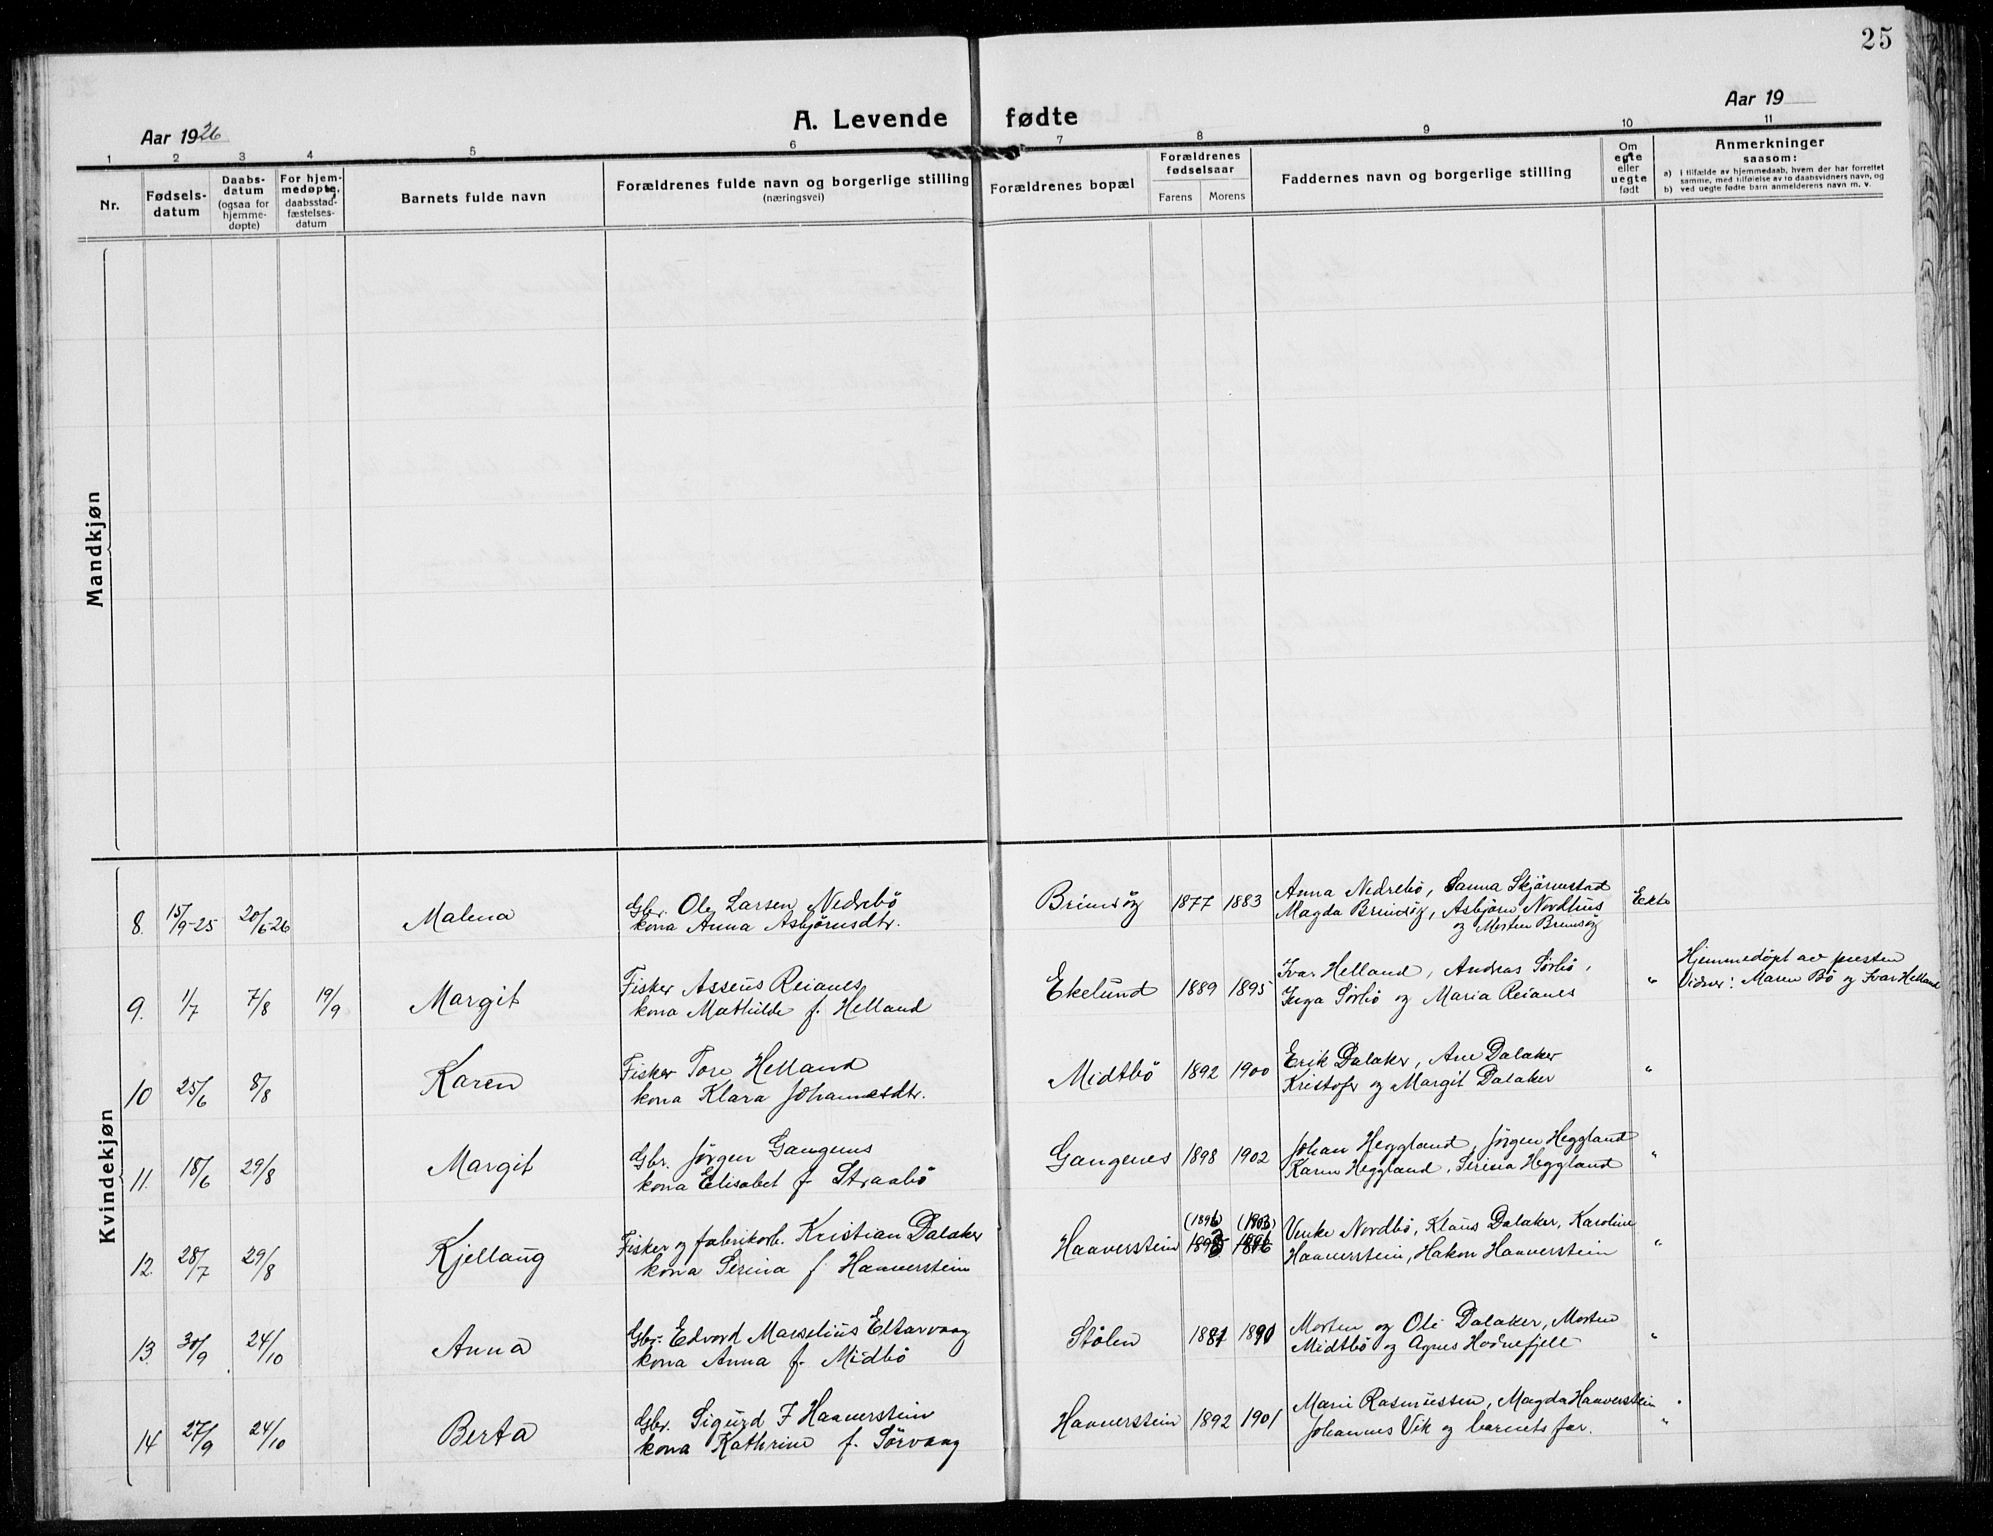 25
Aar 1926
A. Levende fødte
Aar 19
1 2 3 4 5 6 7 8 9 10 11
Nr.
Fødsels-
datum
Daabs-
datum
(ogsaa for
hjemme-
døpte)
For hjem-
medøpte,
daabsstad-
fæstelses-
datum
Barnets fulde navn
Forældrenes fulde navn og borgerlige stilling
(næringsvei)
Forældrenes bopæl
Forældrenes
fødselsaar
Farens Morens
Faddernes navn og borgerlige stilling
Om
egte
eller
uegte
født
Anmerkninger
saasom:
a) i tilfælde av hjemmedaab, hvem der har forrettet
samme, med tilføielse av to daabsvidners navn, og
b) ved uegte fødte barn anmelderens navn m. v.
Mandkjøn
Kvindekjøn
8. 15/9-25 20/6-26 Malena
Gbr. Ole Larsen Nedrebö
kona Anna Asbjörnsdtr.
Brimsög 1877 1883
Anna Nedrebö, Sanna Skjörnstad
Magda Brimsög, Asbjörn Nordhus
og Morten Brimsög
Ekte
9. 1/7 7/8 19/9 Margit
Fisker Asseus Reianes
kona Mathilde f. Helland
Ekelund 1889 1895
Ivar Helland, Andreas Sörbö,
Inga Sörbö og Maria Reianes
"
Hjemmedöpt av presten
Vidner: Maren Bö og Ivar Helland
10 25/6 8/8 Karen
Fisker Tore Helland
kona Klara Johannesdtr.
Midtbö 1892 1900
Erik Dalaker, Ane Dalaker
Kristofer og Margit Dalaker
"
11. 18/6 29/8 Margit
Gbr. Jörgen Gangenes
kona Elisabet f. Straabö
Gangenes 1898 1902
Johan Heggland, Jörgen Heggland
Karen Heggland, Serina Heggland
"
12. 28/7 29/8 Kjellaug
Fisker og fabrikarb. Kristian Dalaker
kona Serina f. Haaverstein
Haaverstein (1896) (1903)
Venke Nordbö, Klaus Dalaker, Karoline
Haaverstein, Hakon Haaverstein
"
13. 30/9 24/10 Anna
Gbr. Edvard Marselius Eltarvaag
kona Anna f. Midbö
Stölen 1881 1890
Morten og Ole Dalaker, Morten
Midtbö og Agnes Hodnefjell
"
14 27/9 24/10 Berta
Gbr. Sigurd F Haaverstein
kona Kathrine f. Sörvaag
Haaverstein 1892 1901
Marie Rasmussen, Magda Haaverstein
Johannes Vik og barnets far.
"